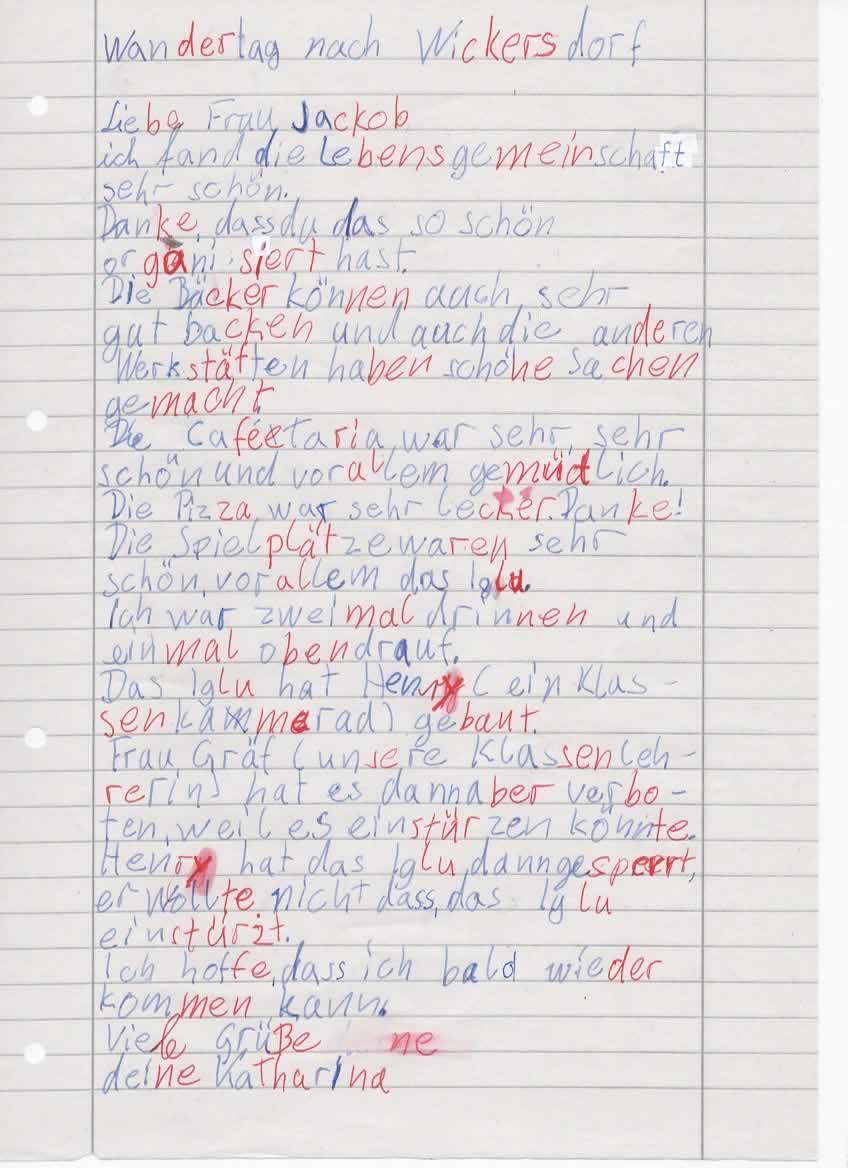 Wandertag nach Wickersdorf
Liebe Frau Jackob
ich fand die Lebensgemeinschaft
sehr schön.
Danke, dass du das so schön
organisiert hast.
Die Bäcker können auch sehr
gut backen und auch die anderen
Werkstätten haben schöne Sachen
gemacht.
Die Caféetaria war sehr, sehr
schön und vorallem gemüdlich.
Die Pizza war sehr lecker. Danke!
Die Spielplätze waren sehr
schön, vorallem das Iglu.
Ich war zweimal drinnen und
einmal obendrauf.
Das Iglu hat Henry (ein Klas-
senkammerad) gebaut.
Frau Gräf (unsere Klassenleh-
rerin) hat es dann aber verbo-
ten, weil es einstürzen könnte.
Henry hat das Iglu dann gesperrt,
er wollte nicht dass, das Iglu
einstürzt.
Ich hoffe, dass ich bald wieder
kommen kann.
Viele Grüße ne
deine Katharina